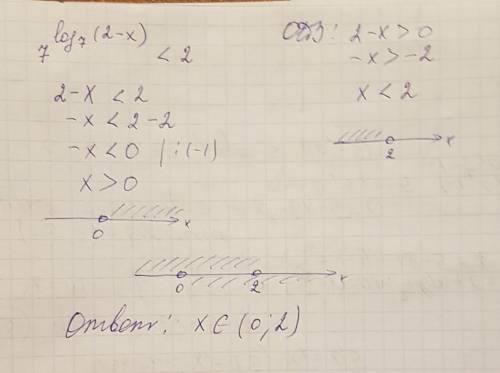 7^log₇(2-x) < 2
2-x < 2
-x < 2-2
-x < 0 | :(-1)
x > 0
0 x
ОДЗ: 2-x > 0
-x > -2
x < 2
2 x
0 2 x
Ответ: x ∈ (0; 2)